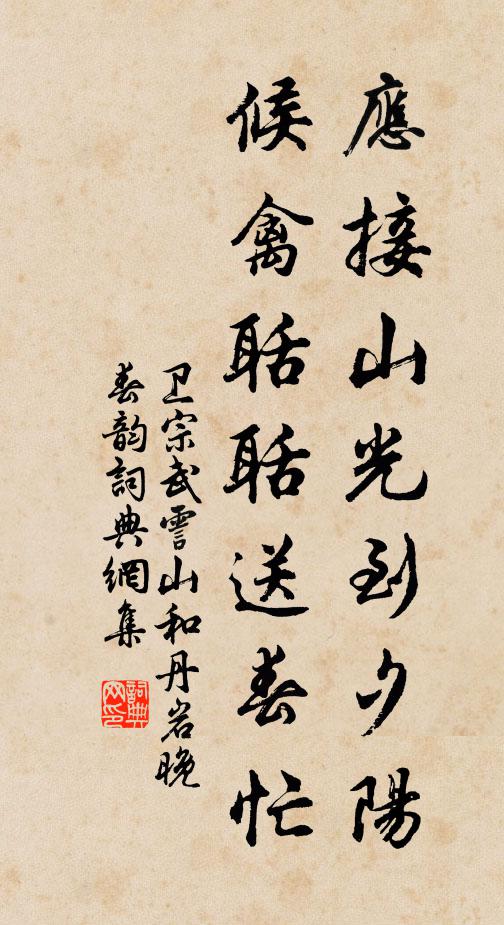 應接山光到夕陽
候禽聒聒送春忙
卫宗武霅山和丹岩晚
春韵詞典網集
詞典
网印